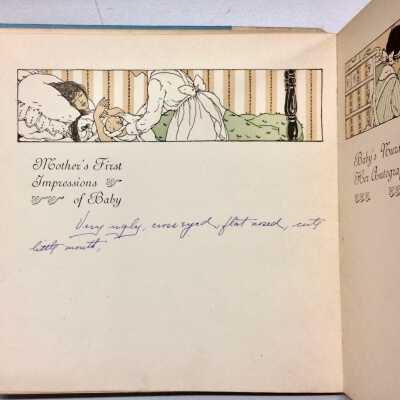 Mother's First
Impressions
of Baby
Very ugly, cross eyed, flat nosed, cute
little mouth.
Baby's Nurs
Her Autogra